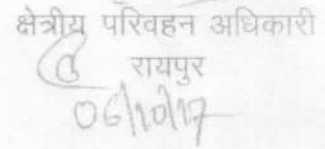 क्षेत्रीय परिवहन अधिकारी
रायपुर
06/10/17